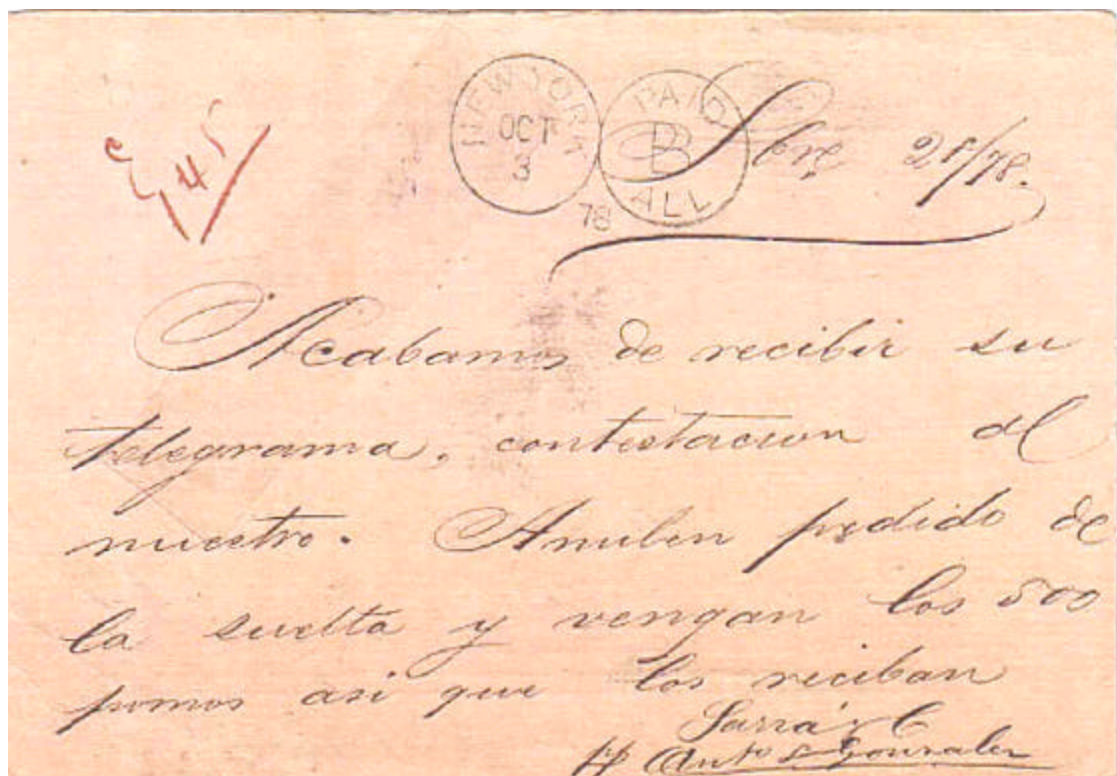 NEW YORK OCT 3 78
PAID B ALL
Sbre 28/78.
Acabamos de recibir su
telegrama, contestacion al
nuestro. Anulen pedido de
la suelta y vengan los 500
pomos asi que los reciban
Sarrá y C
pp Anto S Gonzalez